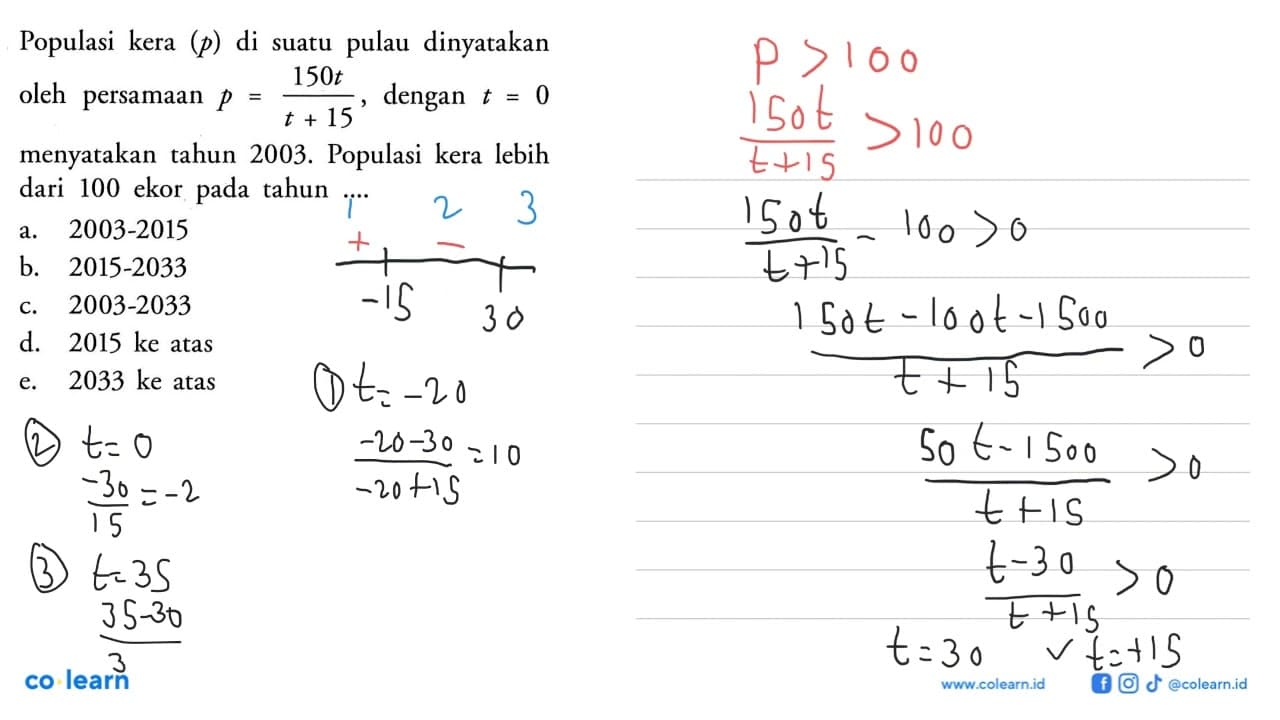 Populasi kera (p) di suatu pulau dinyatakan
oleh persamaan p = 150t / t + 15, dengan t = 0
menyatakan tahun 2003. Populasi kera lebih
dari 100 ekor pada tahun ....
a. 2003-2015
b. 2015-2033
c. 2003-2033
d. 2015 ke atas
e. 2033 ke atas
1 2 3
+ −
-15 30
① t = -20
-20-30 / -20+15 = 10
② t = 0
-30 / 15 = -2
③ t = 35
35-30 / 3
P > 100
150t / t+15 > 100
150t / t+15 - 100 > 0
150t - 100t - 1500 / t + 15 > 0
50t - 1500 / t + 15 > 0
t - 30 / t + 15 > 0
t = 30 ✓ t = +15
co·learn
www.colearn.id @colearn.id